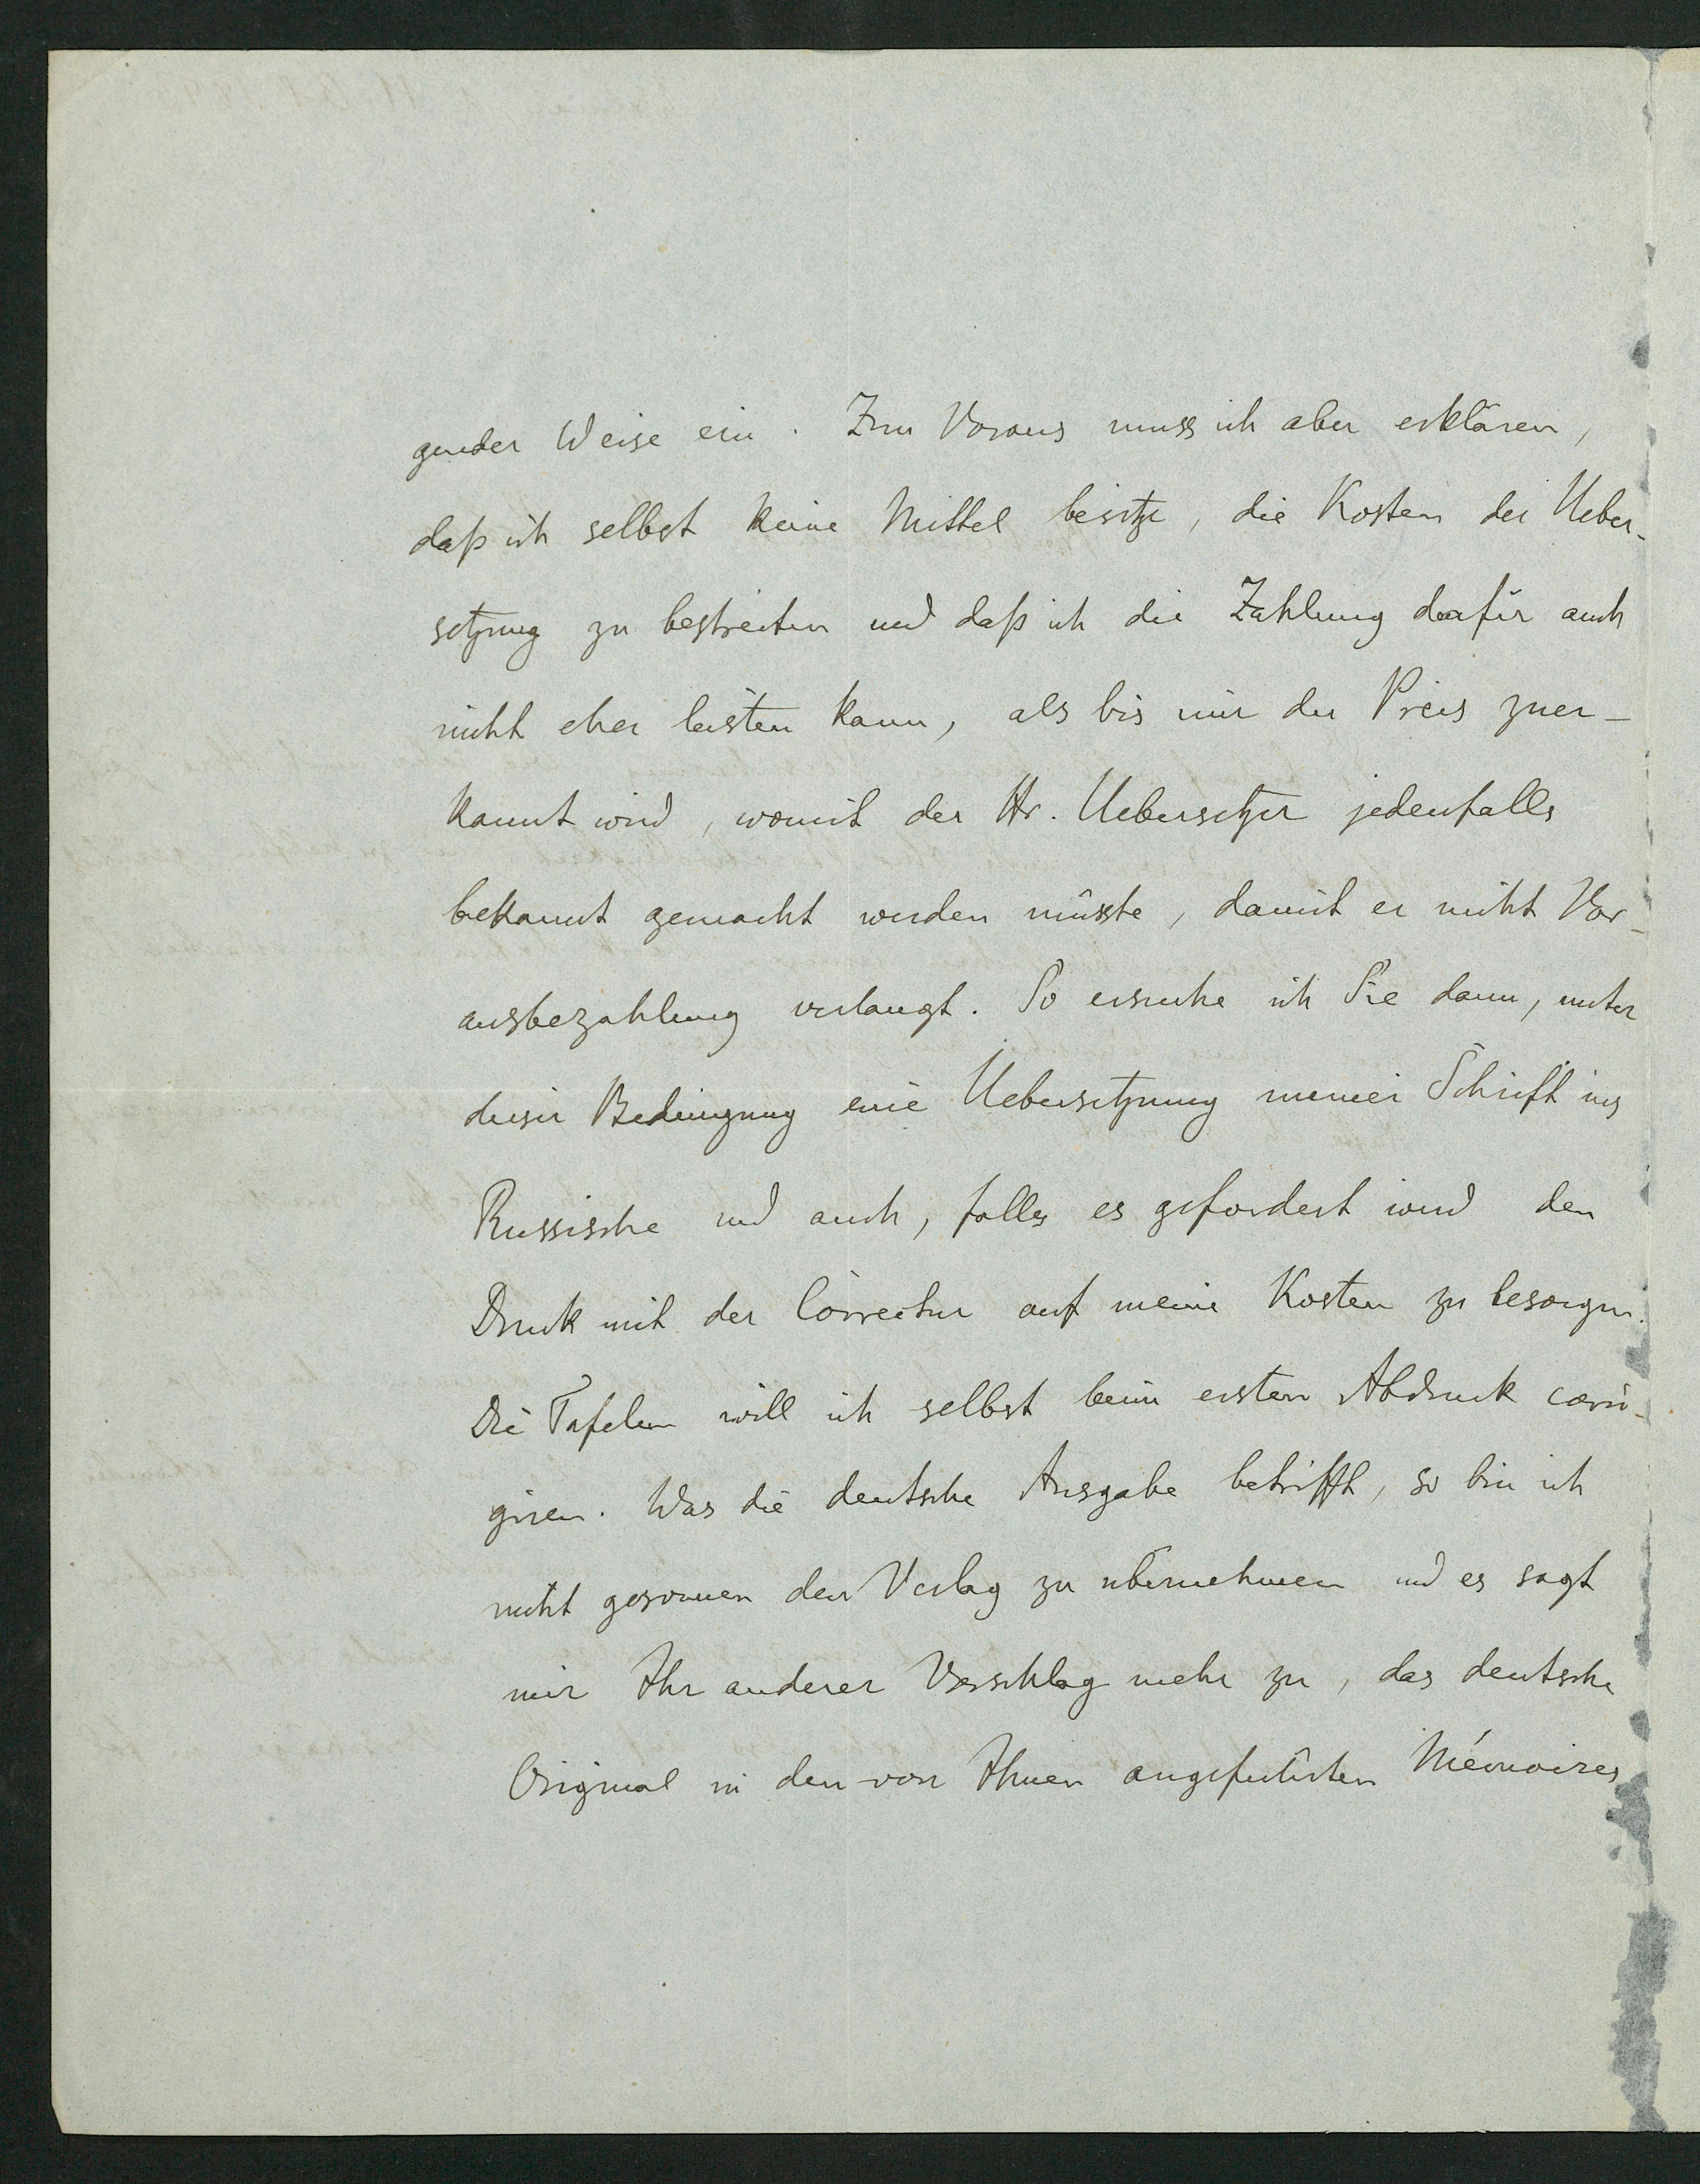 gender Weise ein. Zum Voraus muss ich aber erklären,
daß ich selbst keine Mittel besitze, die Kosten der Ueber-
setzung zu bestreiten und daß ich die Zahlung dafür auch
nicht eher leisten kann, als bis mir der Preis zuer-
kannt wird, womit der Hr. Uebersetzer jedenfalls
bekannt gemacht werden müsste, damit er nicht Vor-
ausbezahlung verlangt. So ersuche ich Sie dann, unter
dieser Bedingung eine Uebersetzung meiner Schrift ins
Russische und auch, falls es gefordert wird den
Druck mit der Correctur auf meine Kosten zu besorgen.
Die Tafeln will ich selbst beim ersten Abdruck corri-
giren. Was die deutsche Ausgabe betrifft, so bin ich
nicht gesonnen den Verlag zu übernehmen und es sagt
mir Ihr anderer Vorschlag mehr zu, das deutsche
Original in den von Ihnen angeführten Mémoires